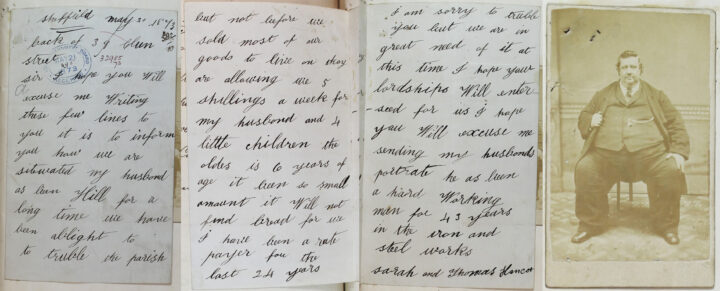 sheffield may 3 1873
back of 39 Clun
street
sir I hope you Will
excuse me Writing
these few lines to
you it is to inform
you how we are
sitwated my husband
as been Hill for a
long time we have
been ablight to
to truble the parish
but not before we
sold most of our
goods to live on thay
are allowing we 5
shillings a week for
my husband and 4
little children the
oldes is 6 years of
age it been so small
amount it Will not
find bread for we
I have been a rate
payer for the
last 24 years
I am sorry to truble
you but we are in
great need of it at
this time I hope your
lordships Will enter-
seed for us I hope
you Will excuse me
sending my husbands
portrate he as been
a hard Working
man for 43 years
in the iron and
steel works
sarah and Thomas